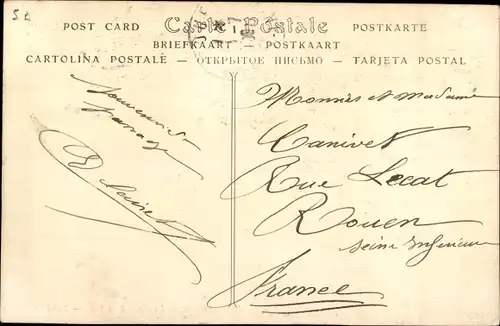 52
POST CARD Carte Postale POSTKARTE
BRIEFKAART — POSTKAART
CARTOLINA POSTALE — ОТКРЫТОЕ ПИСЬМО — TARJETA POSTAL
Monsieur et Madame
Canivet
Rue Lecat
Rouen
Seine Inférieure
France